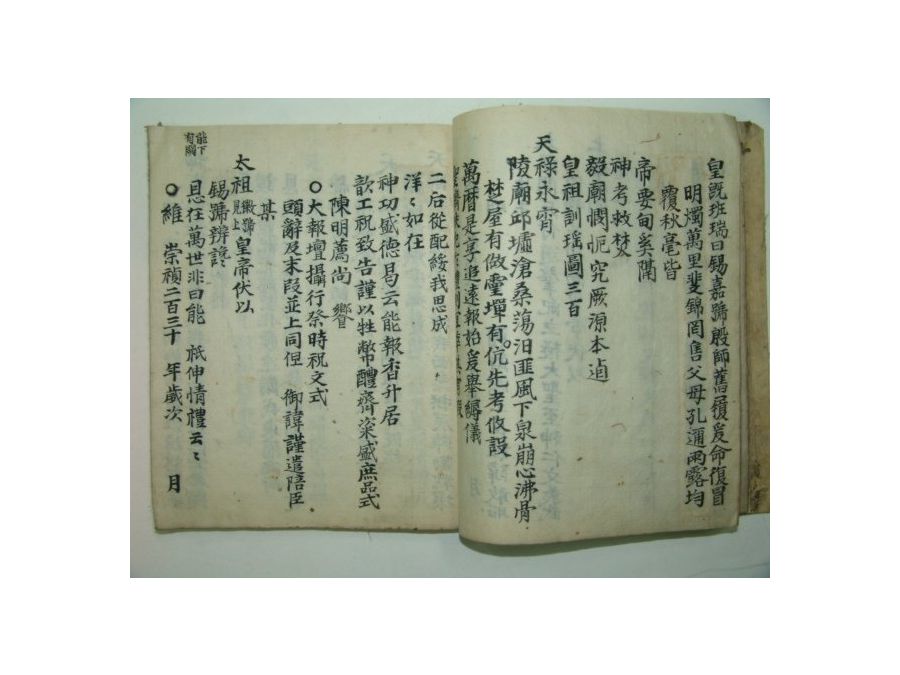 皇旣班瑞曰錫嘉號殷師舊履爰命復冒
明燭萬里斐錦罔售父母孔邇雨露均
覆秋毫皆
帝要甸奚閡
神考救焚
毅廟憫恤究厥源本逌
皇祖訓瑶圖三百
天祿永霄
陵廟邱墟滄桑蕩汨匪風下泉崩心沸骨
楚屋有做霻墠有伉先考攸設
萬曆是享追遠報始爰舉縟儀
二后從配綏我思成
洋〻如在
神功盛德曷云能報香升居
歆工祝致告謹以牲幣醴齊粢盛庶品式
陳明薦尚 饗
○大報壇攝行祭時祝文式
頭辭及末段並上同但 御諱謹遣陪臣
某
太祖徽號見上皇帝伏以
錫號辨讒
恩在萬世非曰能 祇伸情禮云〻
○維 崇禎二百三十 年歲次 月
能下有關